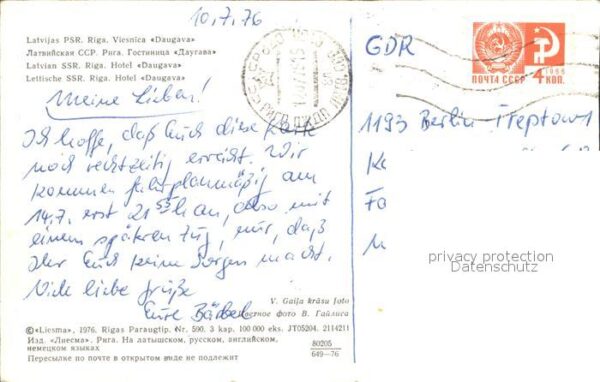 10.7.76
Latvijas PSR. Rīga. Viesnīca «Daugava»
Латвийская ССР. Рига. Гостиница «Даугава»
Latvian SSR. Riga. Hotel «Daugava»
Lettische SSR. Riga. Hotel «Daugava»
GDR
ПОЧТА СССР 4 КОП.
1966
Meine Lieben!
Ich hoffe, daß Euch diese Karte
noch rechtzeitig erreicht. Wir
kommen fahrplanmäßig am
14.7. erst 21 55 h an, also mit
einem späteren Zug, nur, daß
Ihr Euch keine Sorgen macht.
Viele liebe Grüße
Eure Bärbel
1193 Berlin-Treptow 1
privacy protection
Datenschutz
V. Gaiļa krāsu foto
Цветное фото В. Гайлиса
©«Liesma», 1976. Rīgas Paraugtip. Nr. 590. 3 kap. 100 000 eks. JT05204. 2114211
Изд. «Лиесма». Рига. На латышском, русском, английском,
немецком языках
Пересылке по почте в открытом виде не подлежит
80205
649—76